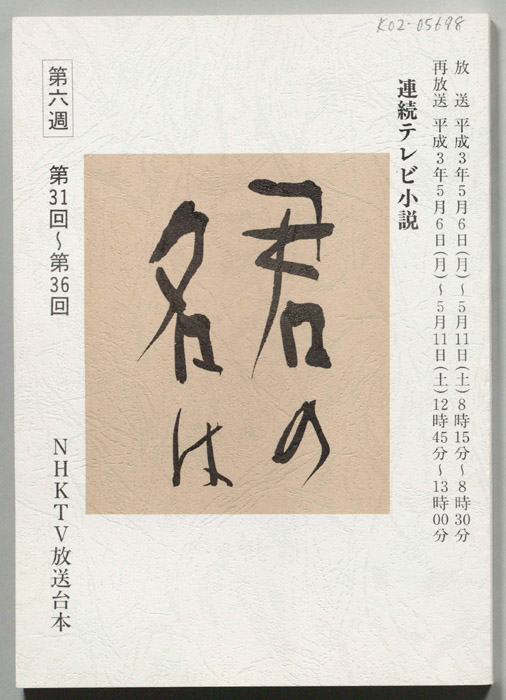 K02-05698
放送 平成3年5月6日(月)〜5月11日(土)8時15分〜8時30分
再放送 平成3年5月6日(月)〜5月11日(土)12時45分〜13時00分
連続テレビ小説
君の
名は
第六週
第31回〜第36回
NHKTV放送台本